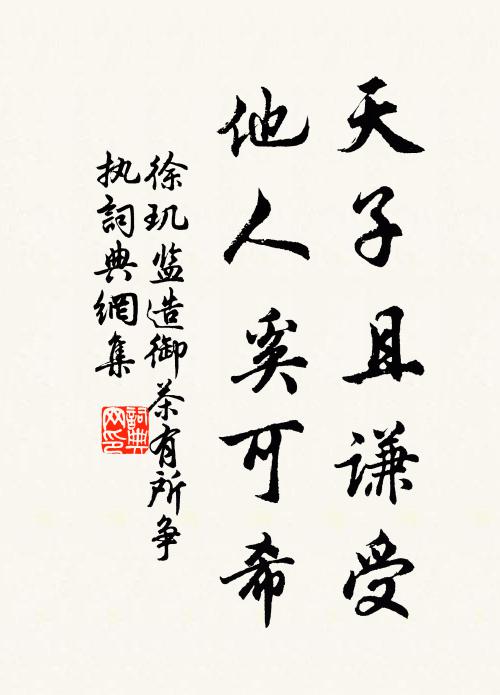 天子且谦受
他人奚可希
徐玑监造御茶有所争
执詞典網集
詞典网印